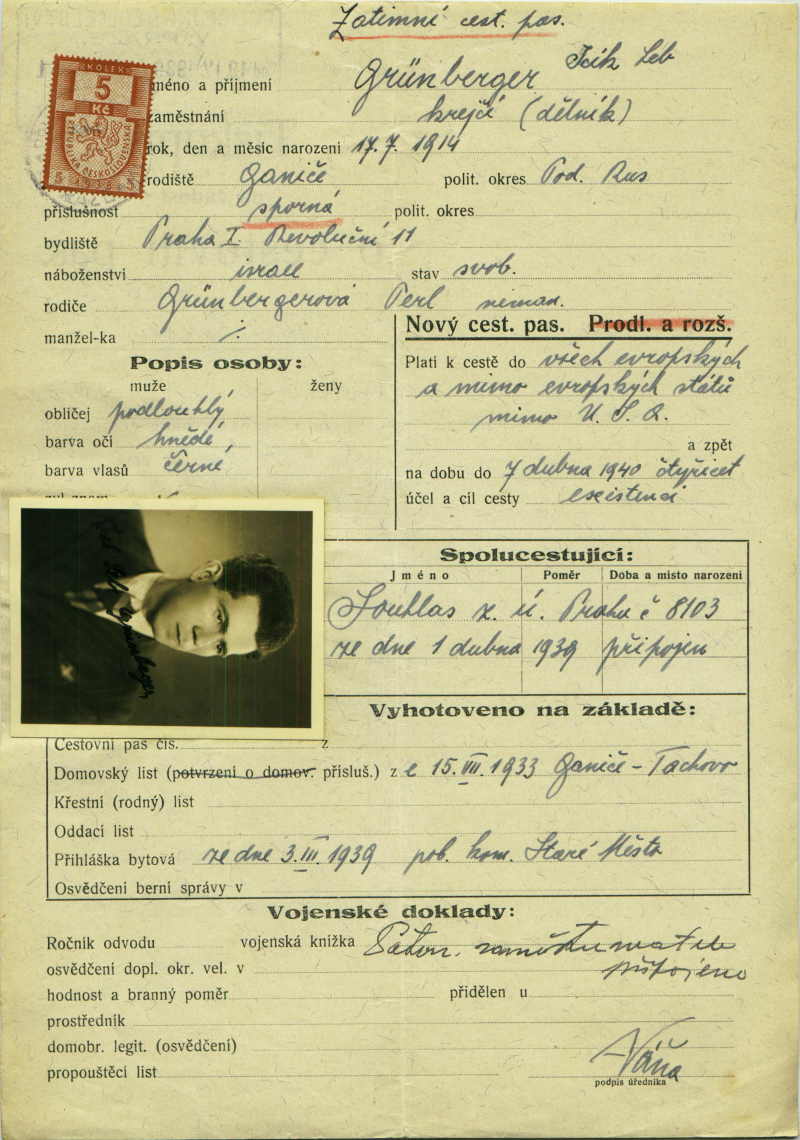 Zatimní cest. pas.
KOLEK
5
Kč
REPUBLIKA ČESKOSLOVENSKÁ
5 1938 5
jméno a příjmení Grünberger Icik Leb
zaměstnání krejčí (dělník)
rok, den a měsíc narození 17.7. 1914
rodiště Ganiče polit. okres Pod. Rus
příslušnost sporná polit. okres
bydliště Praha I. Revoluční 11
náboženství israel stav svob.
rodiče Grünbergerová Perl nemad.
manžel-ka ./.
Popis osoby:
muže ženy
obličej podlouhlý
barva očí hnědé,
barva vlasů černé
zvl. znam.
Nový cest. pas. Prodl. a rozš.
Platí k cestě do všech evropských
a mimo evropských států
mimo U. S. A.
a zpět
na dobu do 7 dubna 1940 čtyřicet
účel a cíl cesty existenci
Spolucestující:
Jméno Poměr Doba a místo narození
Souhlas z. ú. Praha č 8103
ze dne 1 dubna 1939 připojen
Vyhotoveno na základě:
Cestovní pas čís. z
Domovský list (potvrzení o domov. přísluš.) z e 15. VII. 1933 Ganiče - Tachovo
Křestní (rodný) list
Oddací list
Přihláška bytová ze dne 3. III. 1939 pob. kom. Staré Město
Osvědčení berní správy v
Vojenské doklady:
Ročník odvodu vojenská knížka
osvědčení dopl. okr. vel. v připojeno
hodnost a branný poměr přidělen u
prostředník
domobr. legit. (osvědčení)
propouštěcí list
Váňa
podpis úředníka